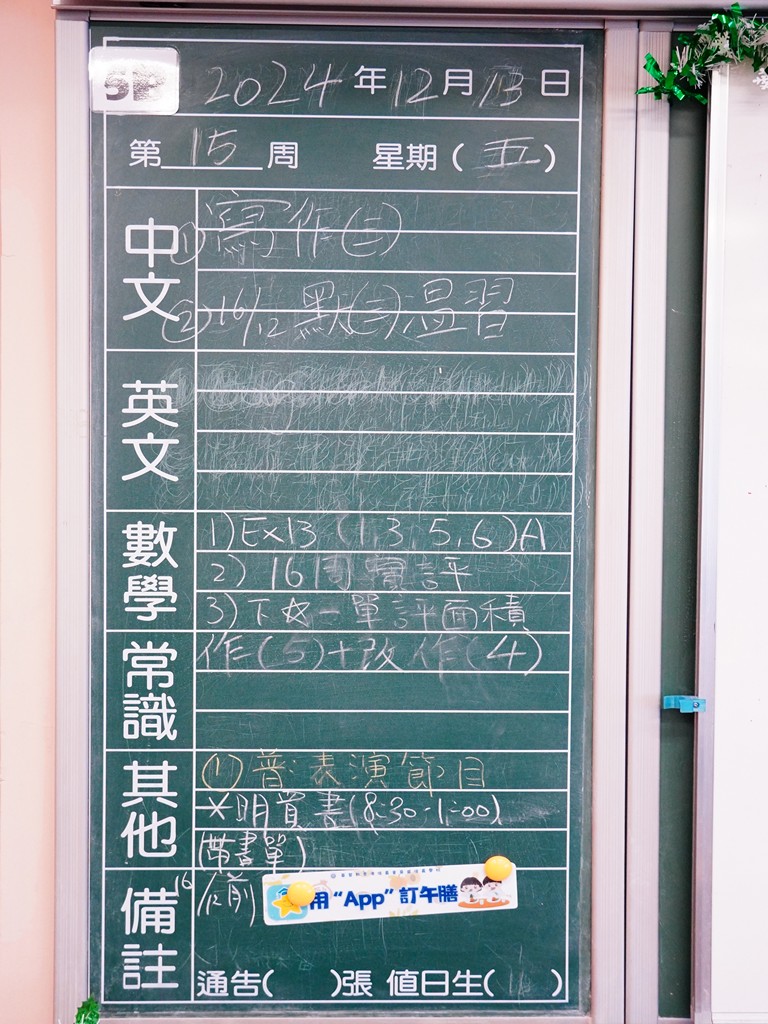 2024年12月13日
第15周 星期(五)
中文
①寫作(三)
②16/12默(三)溫習
英文
數學
1)Ex13 (1,3,5,6)A
2) 16周實評
3)下☆一單評面積
常識
作(5)+改作(4)
其他
①普:表演節目
*明買書(8:30-1:00)
(帶書單)
備註
16/12前
用"App"訂午膳
通告( )張 值日生( )